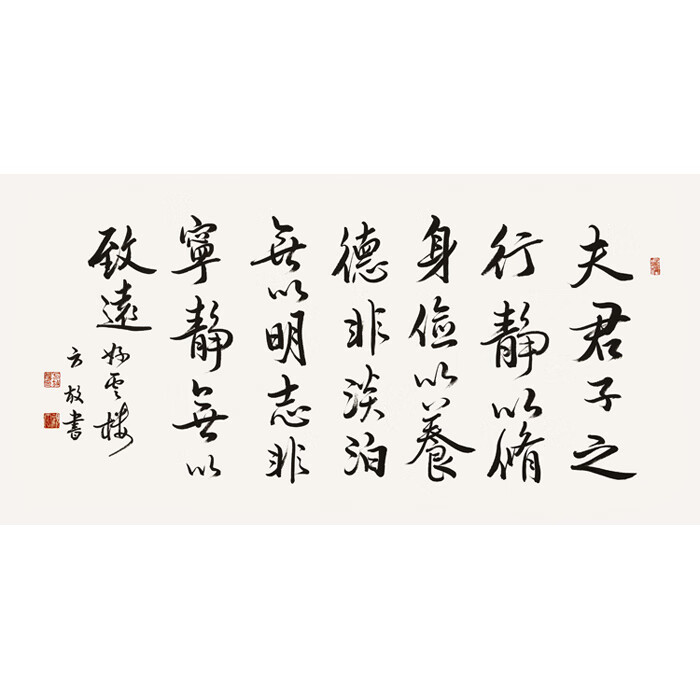 夫君子之
行靜以脩
身儉以養
德非淡泊
無以明志非
寧靜無以
致遠
妙雲樓
方放書